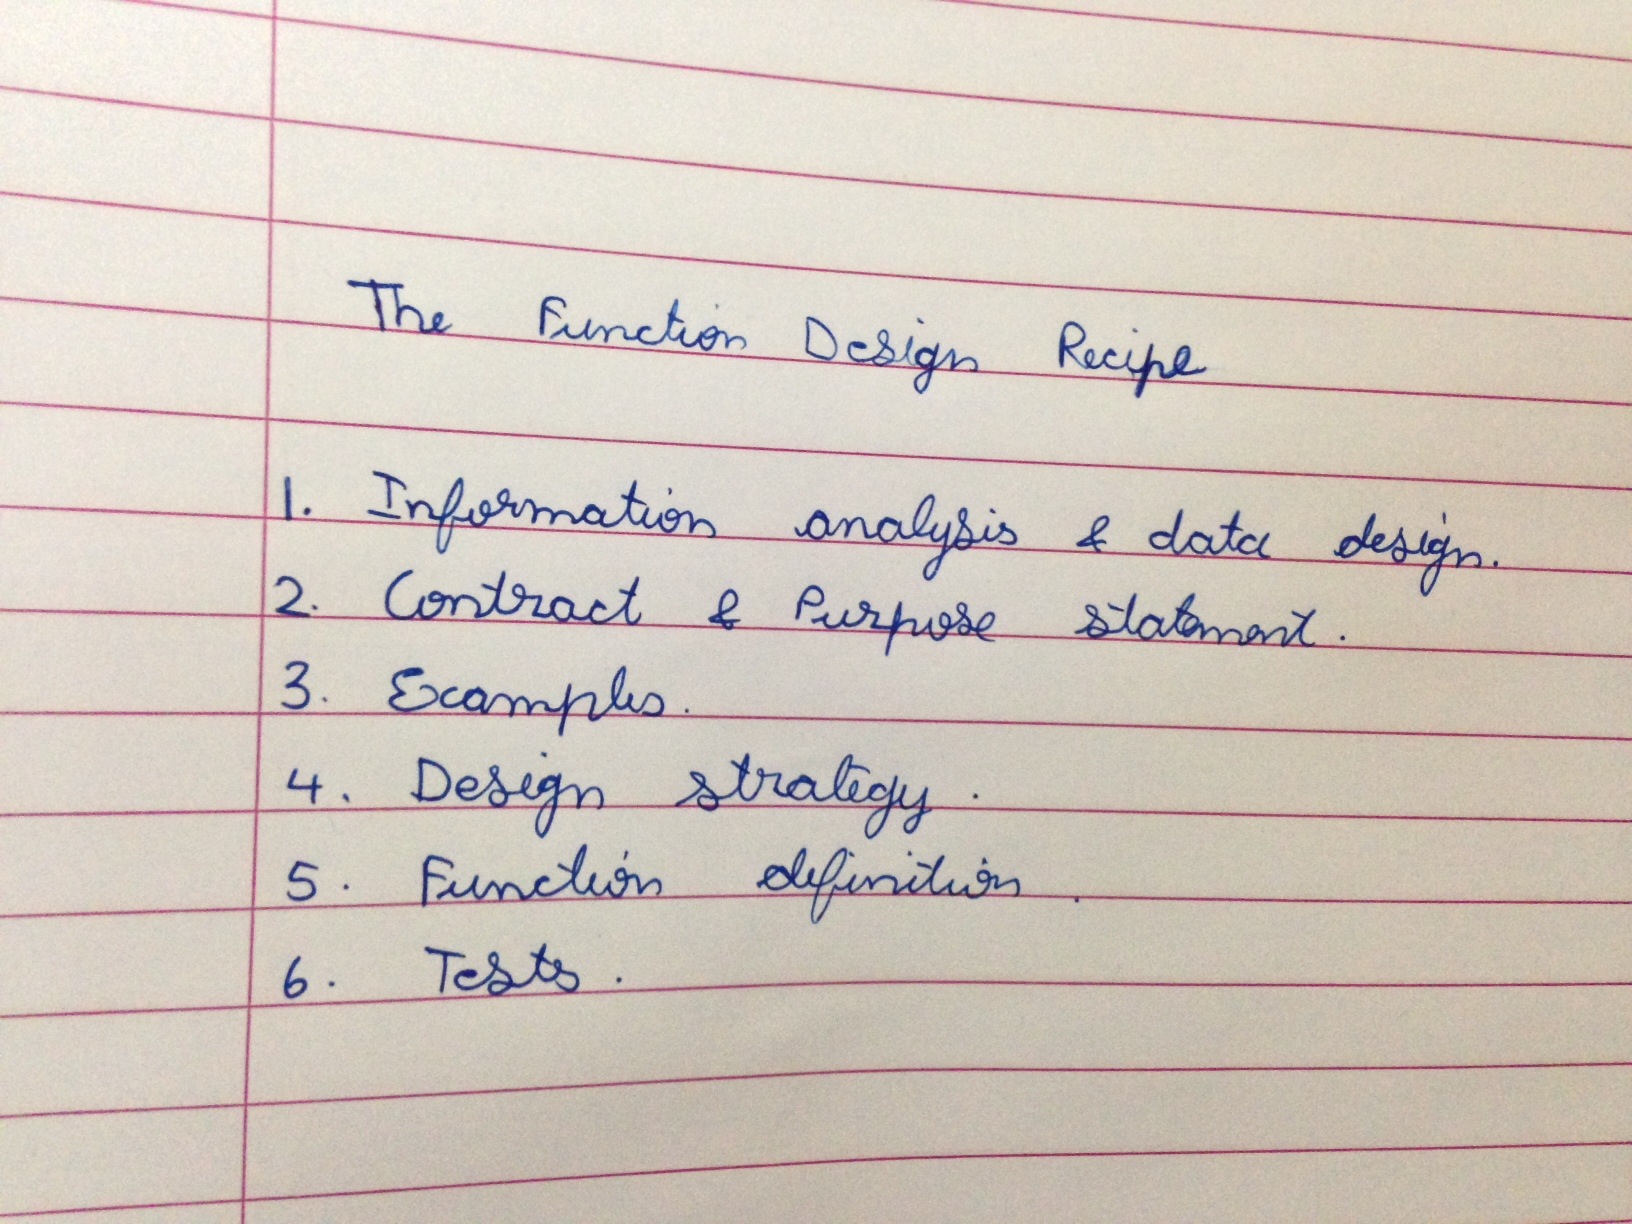 The Function Design Recipe
1. Information analysis & data design.
2. Contract & Purpose statement.
3. Examples.
4. Design strategy.
5. Function definition.
6. Tests.